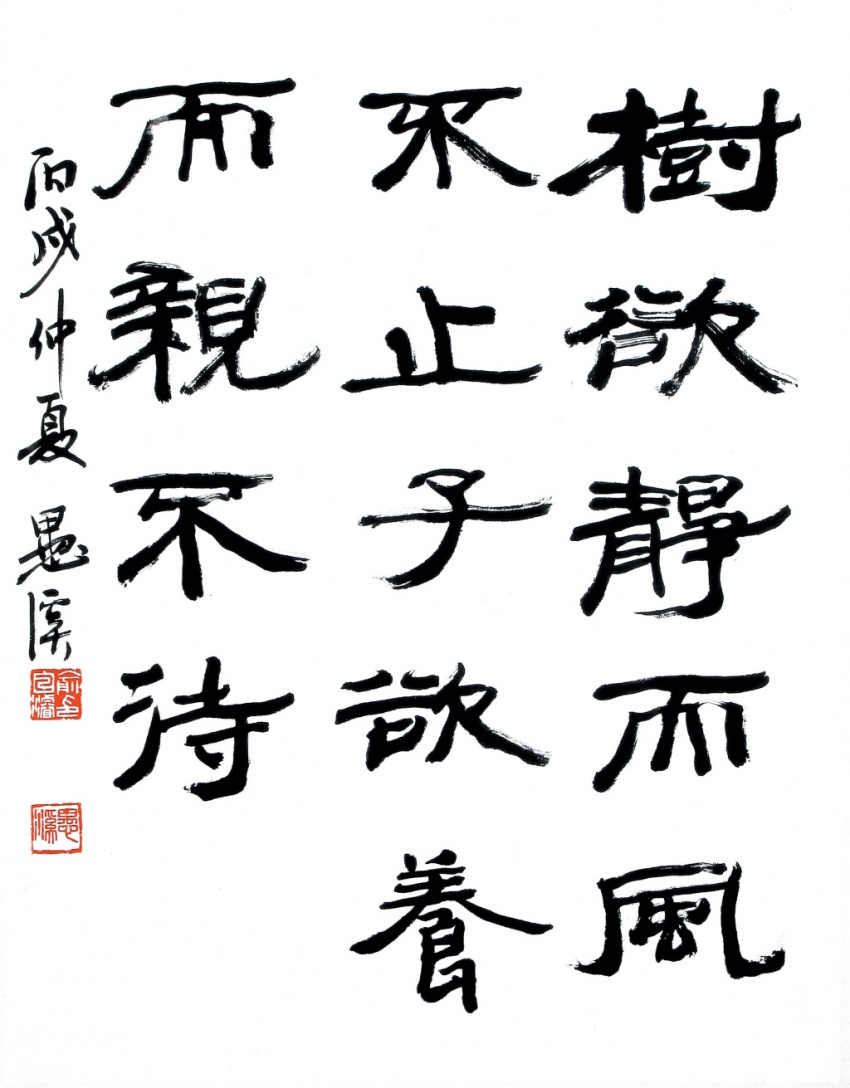 樹欲靜而風
不止子欲養
而親不待
丙戌仲夏 愚溪
愚溪